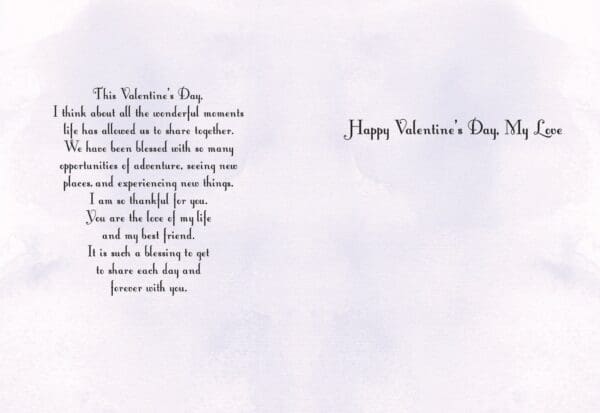 This Valentine's Day,
I think about all the wonderful moments
life has allowed us to share together.
We have been blessed with so many
opportunities of adventure, seeing new
places, and experiencing new things.
I am so thankful for you.
You are the love of my life
and my best friend.
It is such a blessing to get
to share each day and
forever with you.
Happy Valentine's Day, My Love